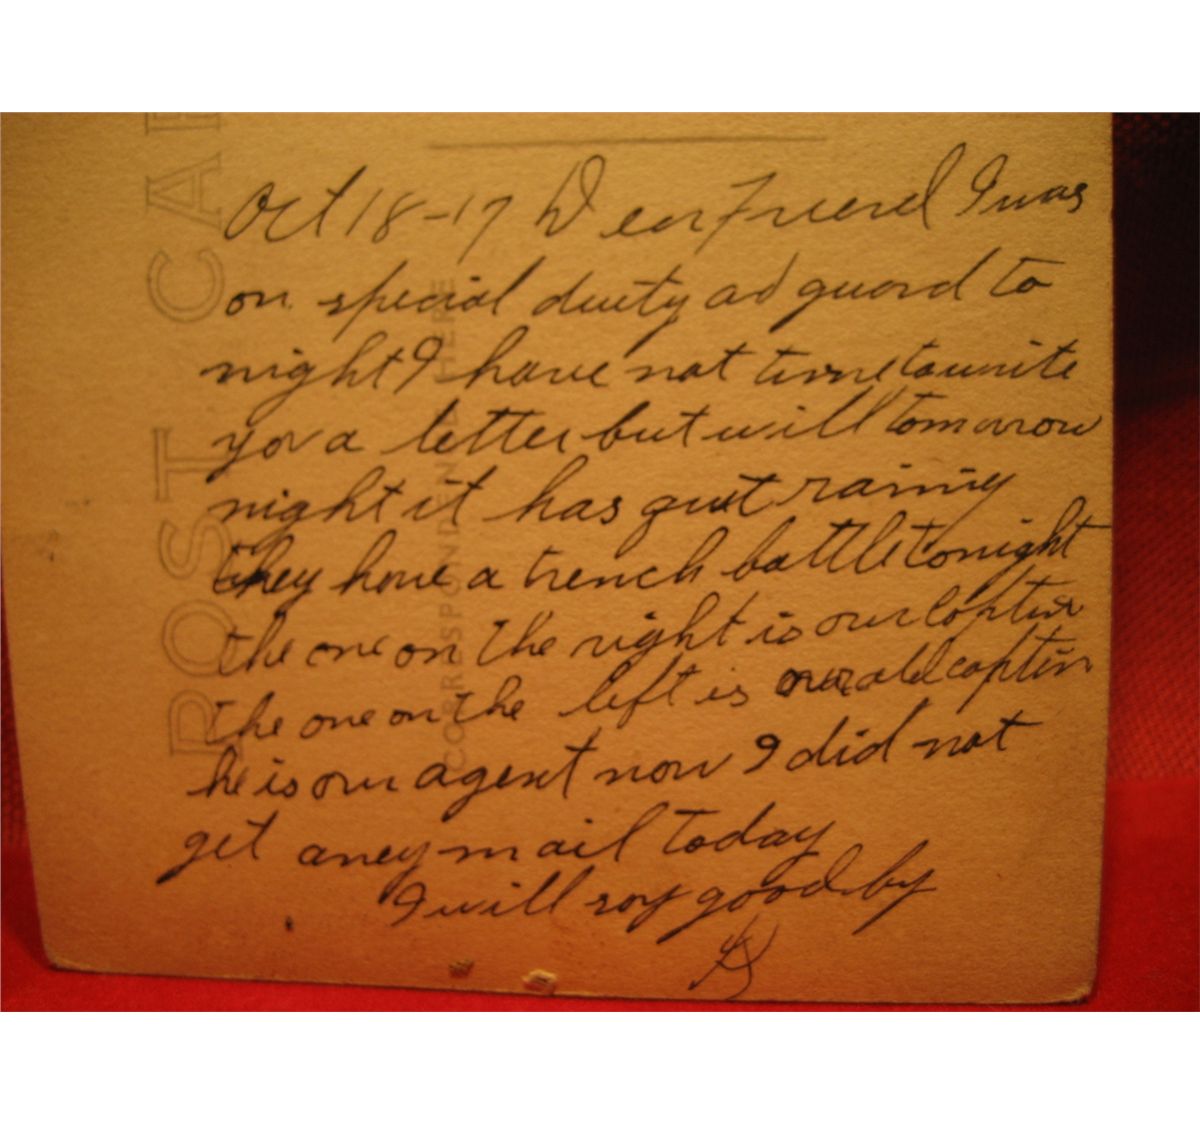 POST CAR
CORRESPONDENCE HERE
Oct 18-17 Dear Friend I was
on special duity ad guard to
night I have not time to write
you a letter but will tomorrow
night it has quit rainiy
they have a trench battle tonight
the one on the right is our Coptin
the one on the left is our old coptin
he is our agent now I did not
get aney mail today
I will say good by